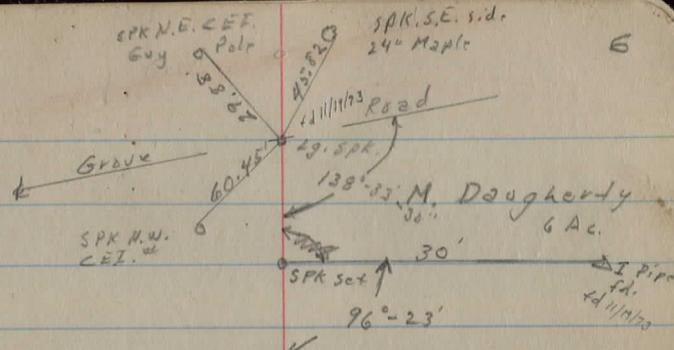 SPK N.E. CEI
Guy Pole
SPK. S.E. Side
24" Maple
6
29.88
45.82
fd 11/19/73
Road
Lg. Spk.
Grove
60.45'
138°-33'-30"
M. Daugherty
6 Ac.
SPK N.W.
CEI. #
SPK Set
30'
I Pipe
fd.
fd 11/19/73
96°-23'